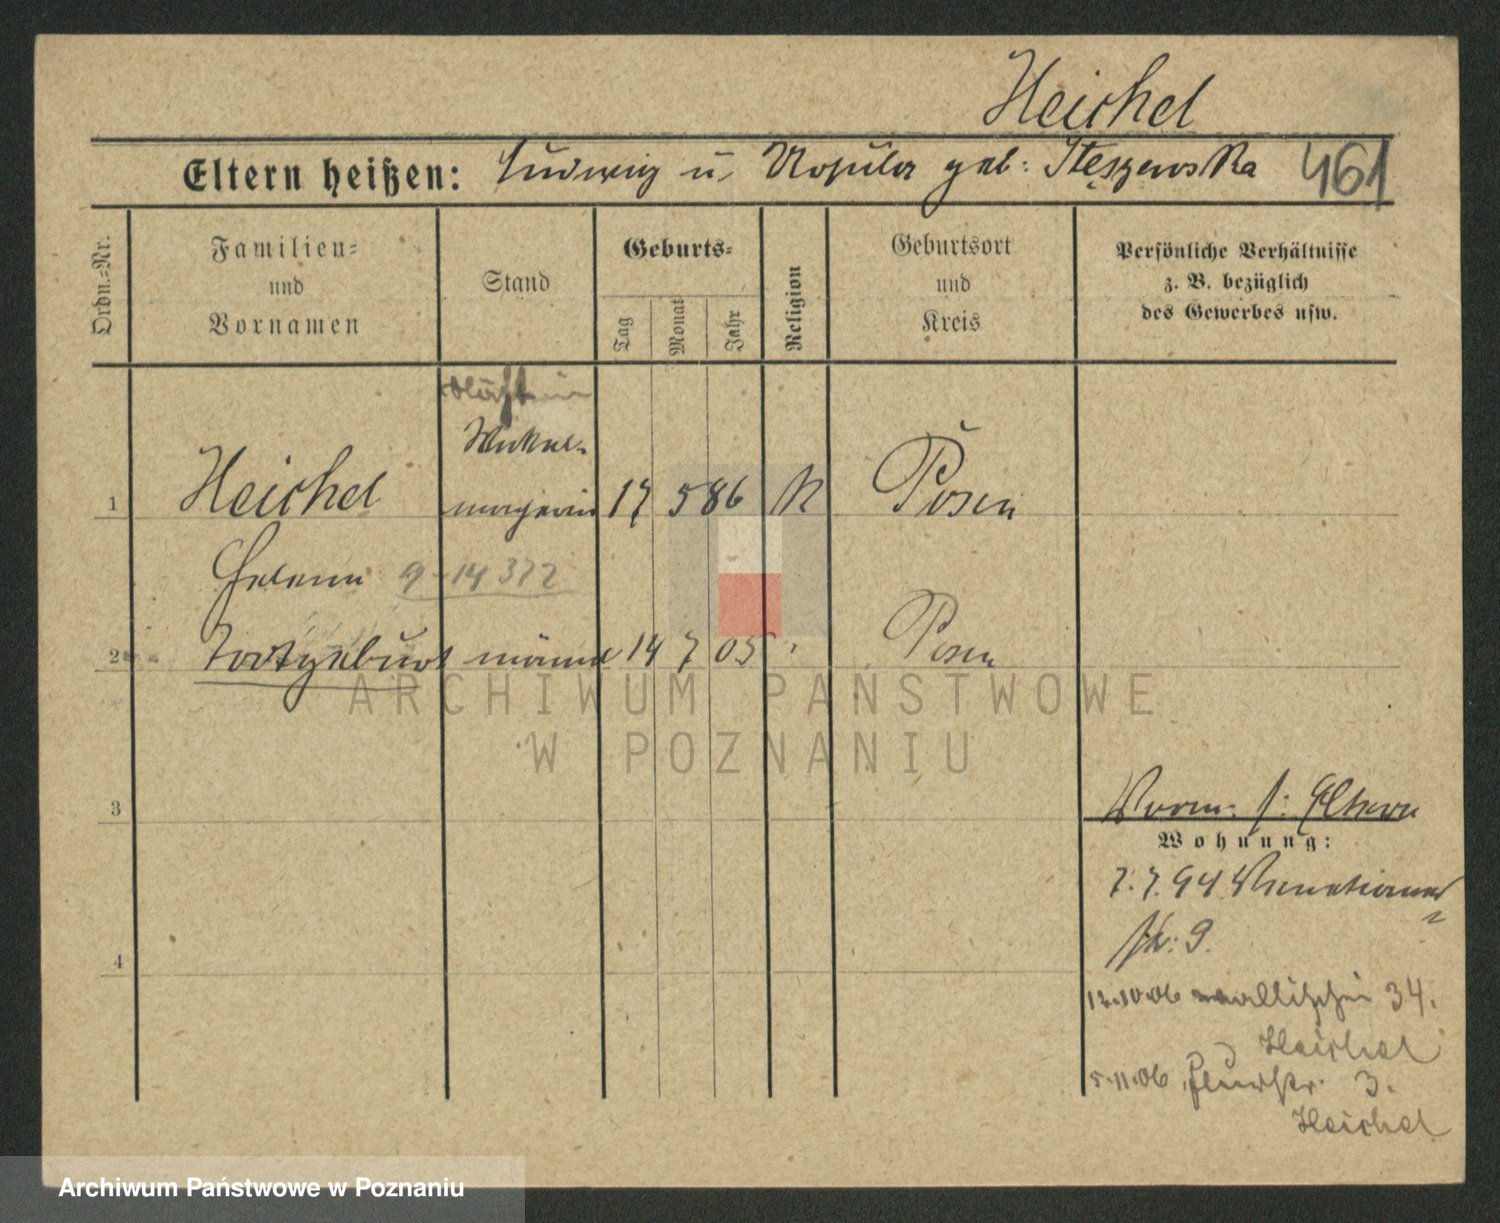 Heichel
Eltern heißen: Ludwig u. Ursula geb: Stęszewska 461
Ordn.=Nr.
Familien=
und
Vornamen
Stand
Geburts=
Tag
Monat
Jahr
Religion
Geburtsort
und
Kreis
Persönliche Verhältnisse
z. B. bezüglich
des Gewerbes usw.
1 Heichel 17 5 86 K Posen
Helene 9-14 372
2 Totgeburt männl 14 7 05 Posen
3
4
Vorm. s: Eltern
Wohnung:
7. 7. 94
str: 9.
12.10.06 Wallischei 34.
Heichel
5.11.06 3.
Heichel
ARCHIWUM PAŃSTWOWE
W POZNANIU
Archiwum Państwowe w Poznaniu